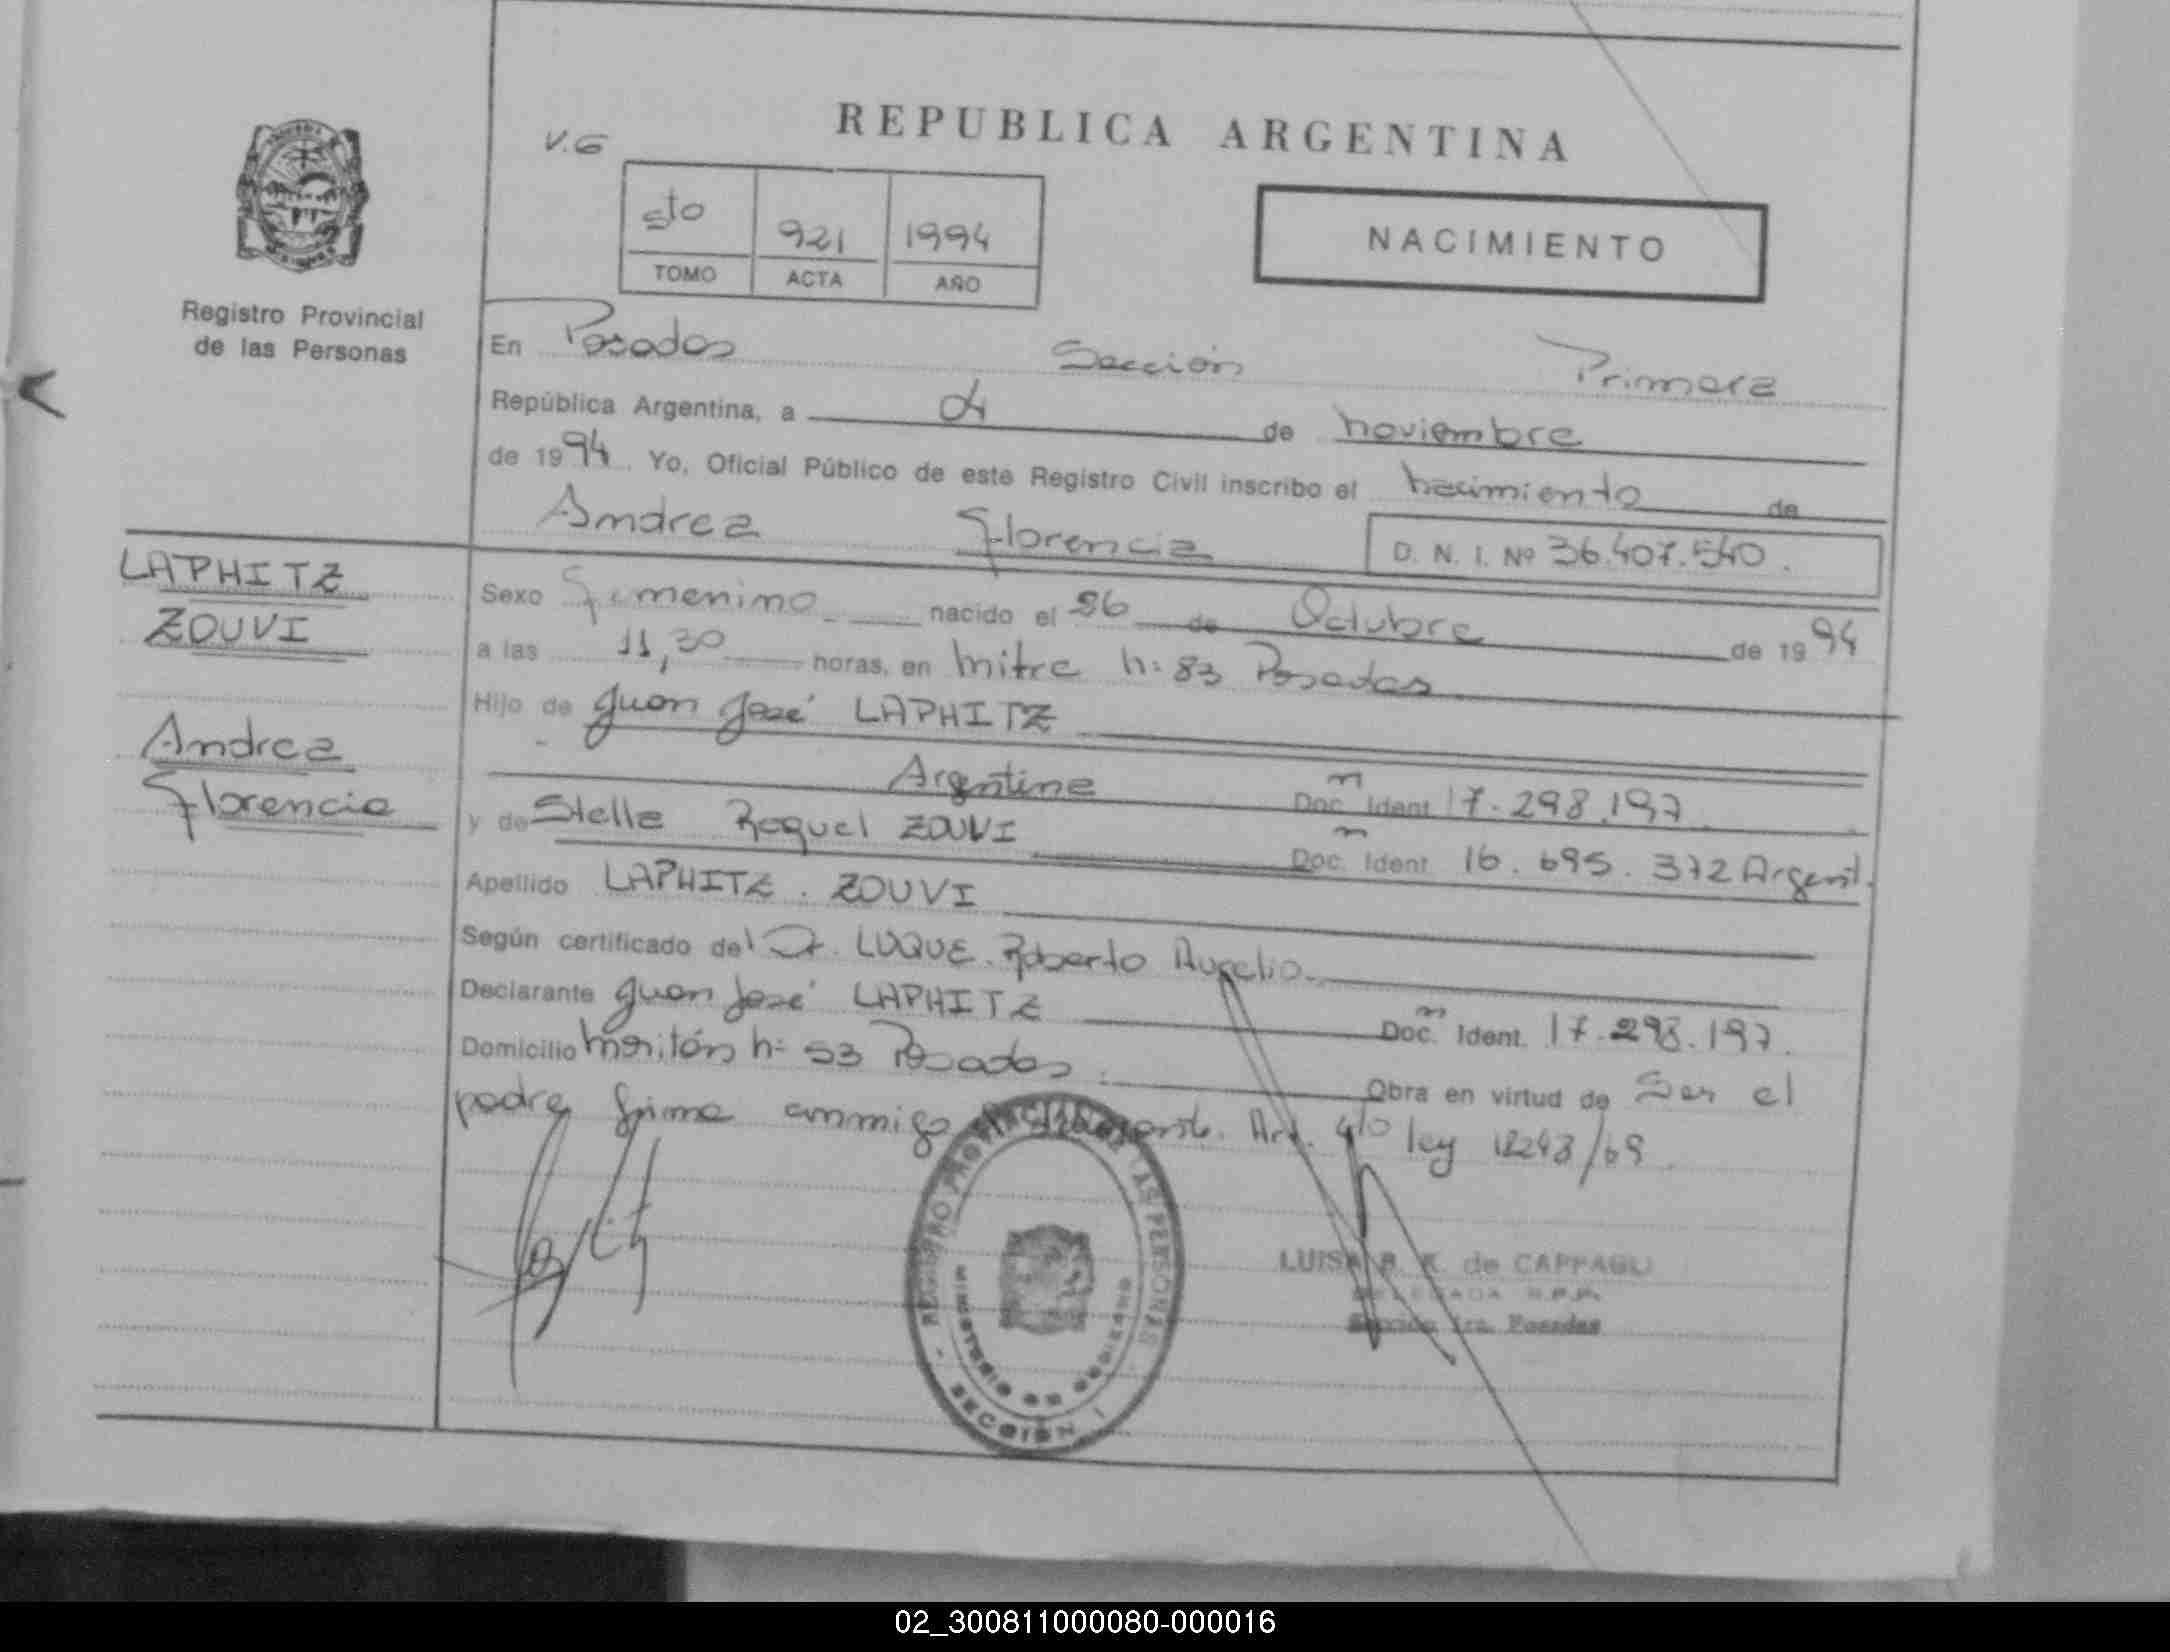 REPUBLICA ARGENTINA
V.G
5to 921 1994
TOMO ACTA AÑO
NACIMIENTO
Registro Provincial
de las Personas
En Posadas Sección Primera
República Argentina, a 04 de noviembre
de 1994 Yo, Oficial Público de este Registro Civil inscribo el nacimiento de
Andrea Florencia D. N. I. Nº 36.407.540.
LAPHITZ
ZOUVI
Andrea
Florencia
Sexo Femenino nacido el 26 de Octubre de 1994
a las 11,30 horas, en Mitre n: 83 Posadas
Hijo de Juan José LAPHITZ
Argentina Doc. Ident 17.298.197
y de Stella Raquel ZOUVI
Doc. Ident. 16.695.372 Argent.
Apellido LAPHITZ. ZOUVI
Según certificado del Dr. LUQUE. Roberto Aurelio.
Declarante Juan José LAPHITZ Doc. Ident. 17.298.197.
Domicilio n: 53 Posadas. Obra en virtud de Ser el
padre firma conmigo Art. ley 18248/69
REGISTRO PROVINCIAL DE LAS PERSONAS
MINISTERIO DE GOBIERNO
SECCIÓN 1
LUISA R. K. de CAPPAGLI
DELEGADA R.P.P.
Sección 1ra. Posadas
02_300811000080-000016